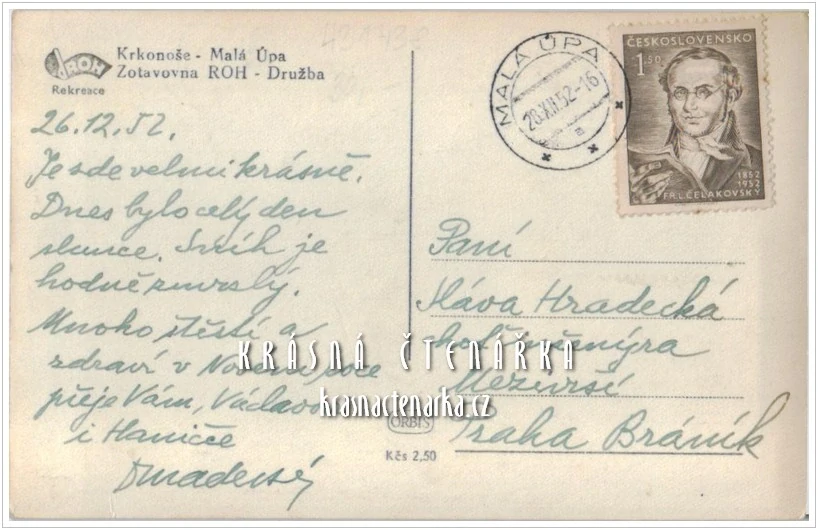 ROH
Rekreace
Krkonoše - Malá Úpa
Zotavovna ROH - Družba
26.12.52.
Je zde velmi krásně.
Dnes bylo celý den
slunce. Sníh je
hodně zmrzlý.
Mnoho štěstí a
zdraví v Novém roce
přeje Vám, Václavovi
i Haničce
MALÁ ÚPA
28.XII.52-16
a
ČESKOSLOVENSKO
1.50
1852
1952
FR.L.ČELAKOVSKÝ
Paní
Sláva Hradecká
Mezivrší
Praha Bráník
KRÁSNÁ ČTENÁŘKA
krasnactenarka.cz
ORBIS
Kčs 2,50